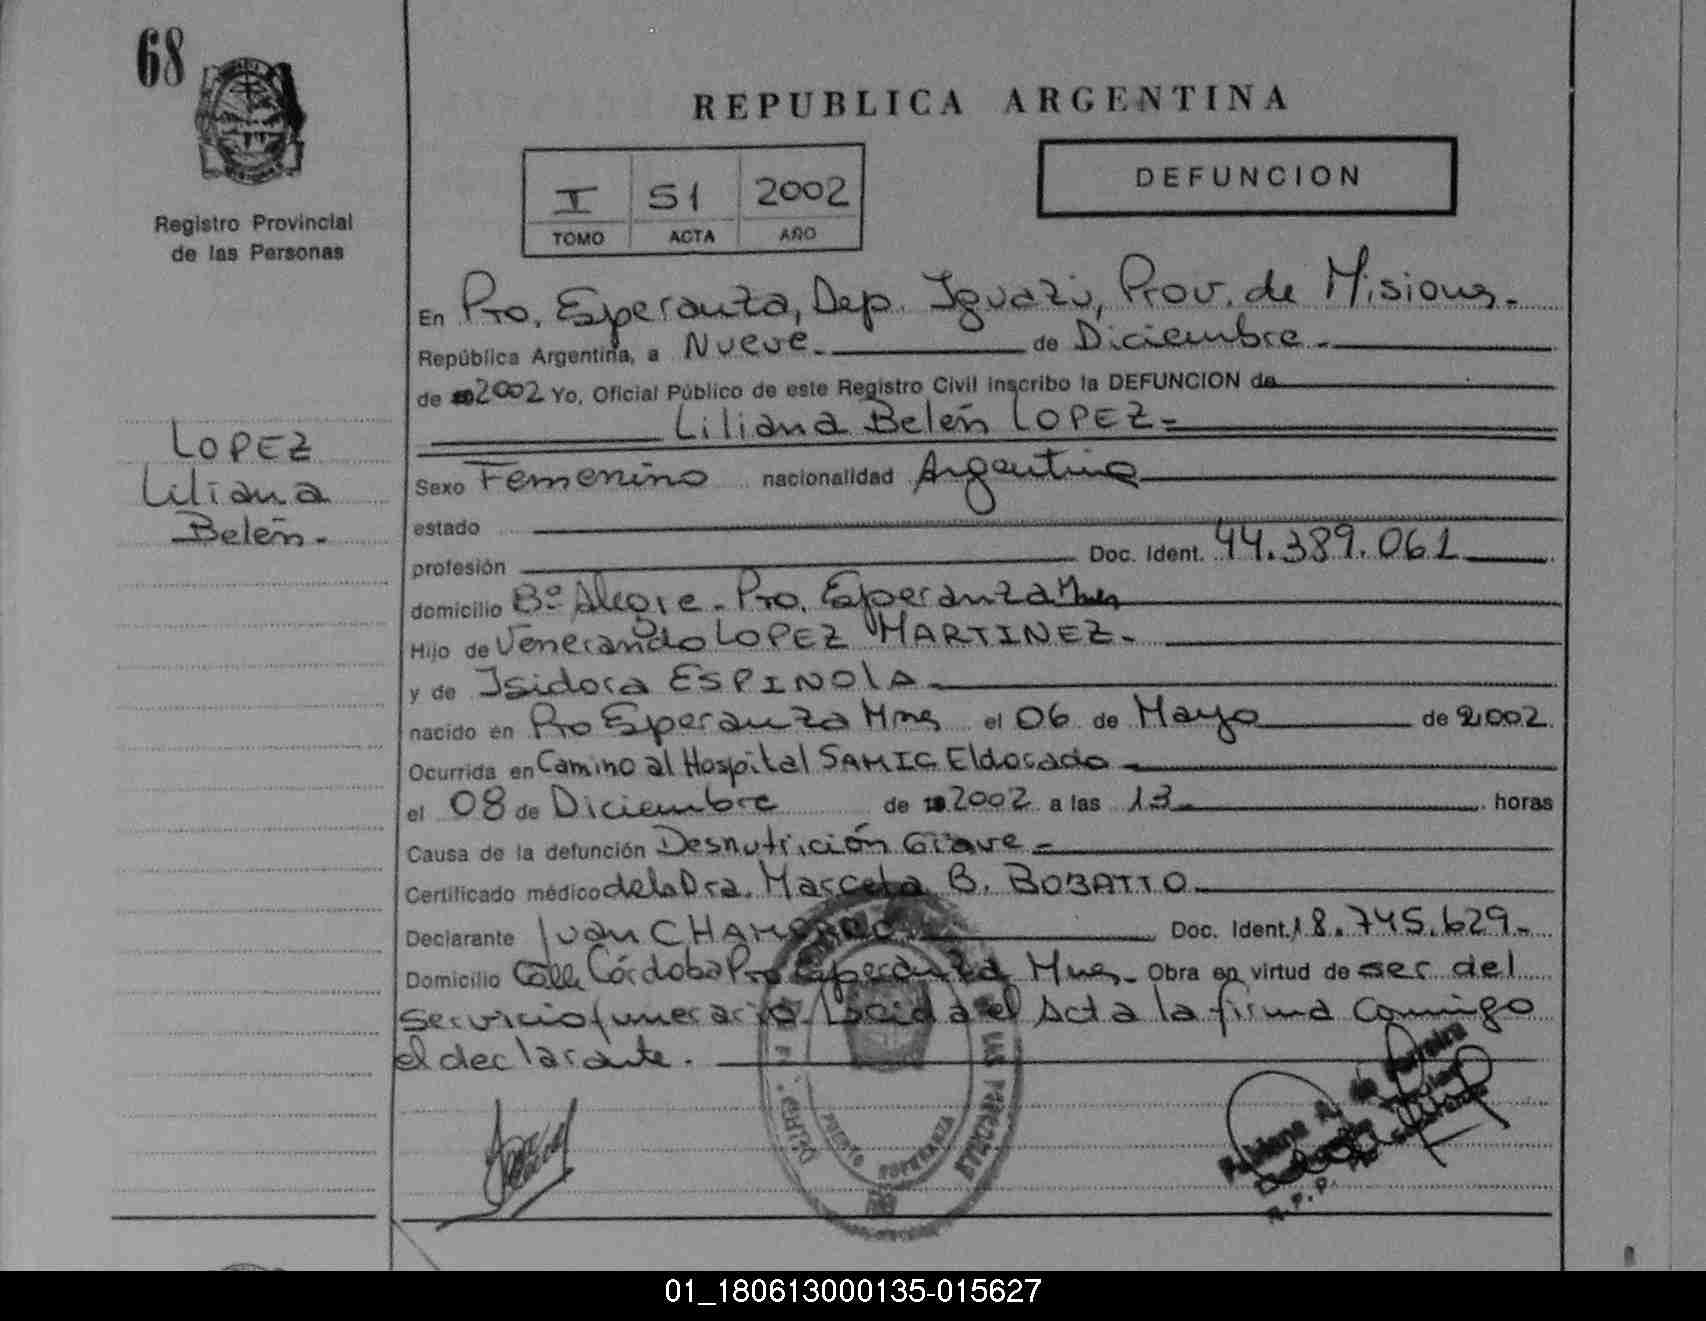 68
REPUBLICA ARGENTINA
Registro Provincial
de las Personas
I 51 2002
TOMO ACTA AÑO
DEFUNCION
LOPEZ
Liliana
Belén.-
En Pto. Esperanza, Dep. Iguazú, Prov. de Misiones.-
República Argentina, a Nueve.- de Diciembre.-
de 2002 Yo, Oficial Público de este Registro Civil inscribo la DEFUNCION de
Liliana Belén LOPEZ=
Sexo Femenino nacionalidad Argentina
estado
profesión Doc. Ident. 44.389.061
domicilio Bº Alegre- Pto. Esperanza Mnes
Hijo de Venerando LOPEZ MARTINEZ.-
y de Isidora ESPINOLA
nacido en Pto Esperanza Mnes el 06 de Mayo de 2.002.
Ocurrida en Camino al Hospital SAMIC Eldorado
el 08 de Diciembre de 2002 a las 13 horas
Causa de la defunción Desnutrición Grave-
Certificado médico de la Dra. Marcela B. BOBATTO
Declarante Juan CHAMORRO Doc. Ident. 18.745.629.-
Domicilio Calle Córdoba Pto Esperanza Mnes- Obra en virtud de ser del
servicio funerario. Leida el Acta la firma comigo
el declarante.
LAS PERSONAS
PUERTO ESPERANZA
01_180613000135-015627